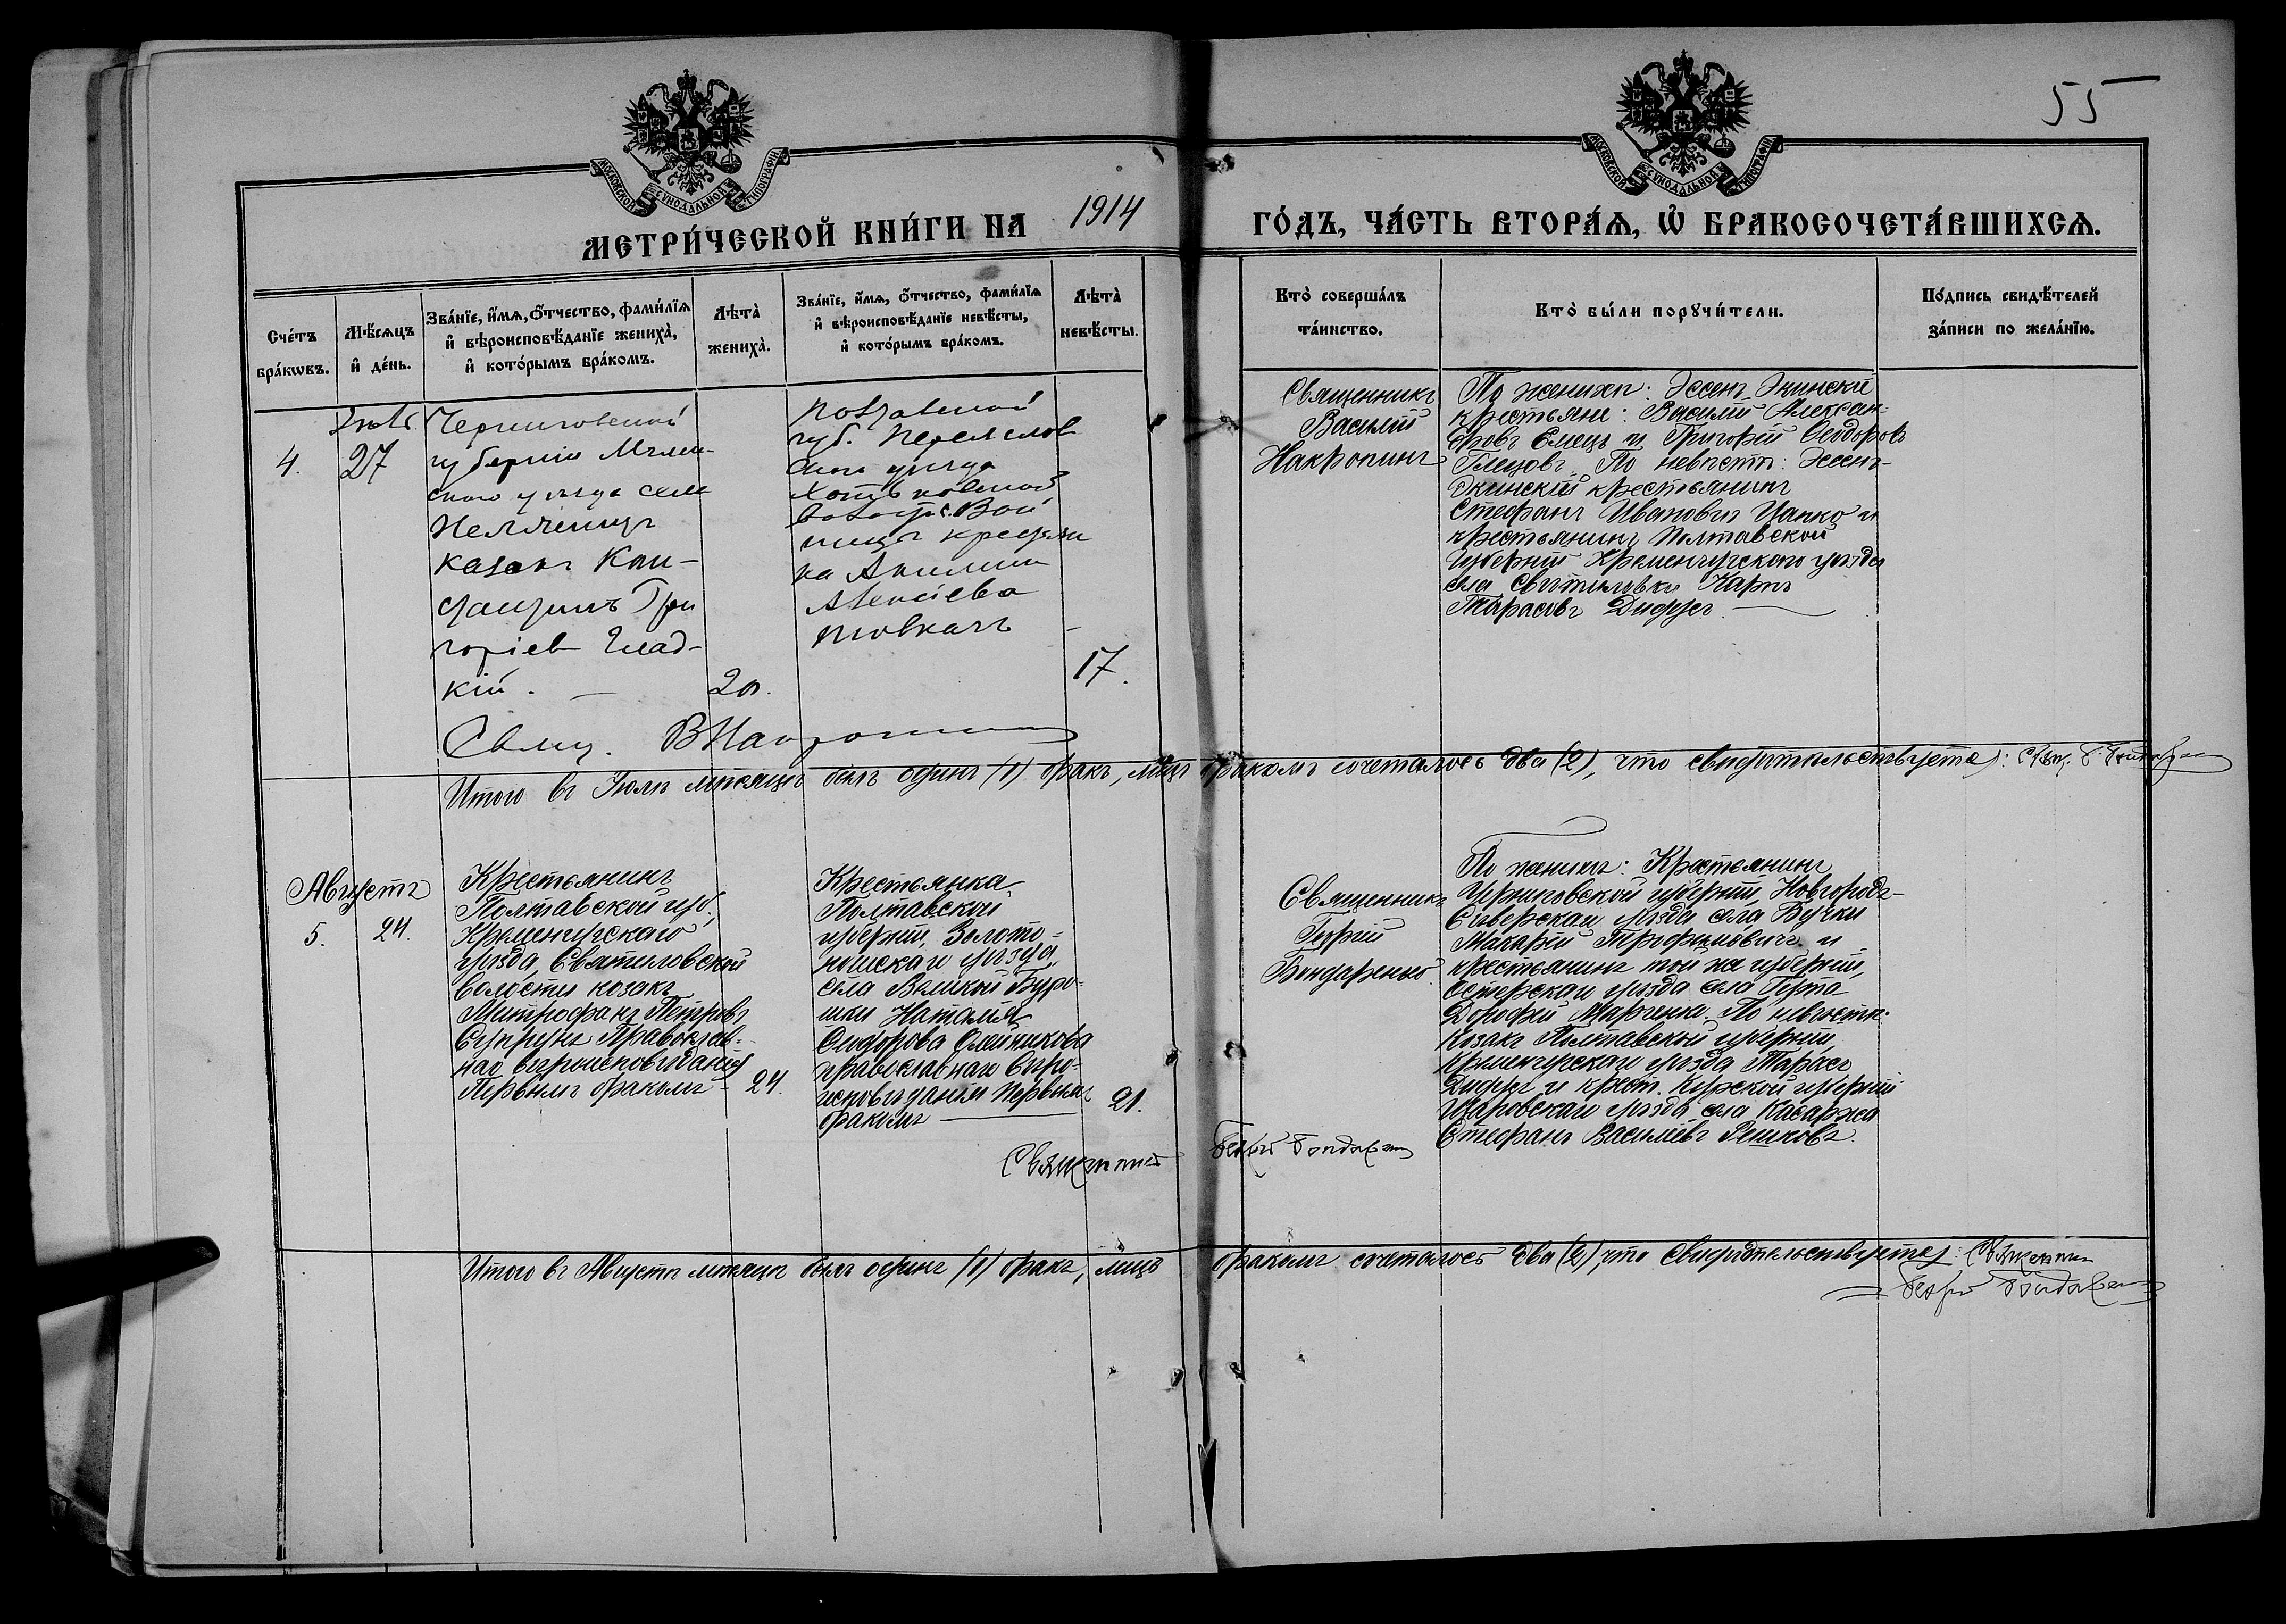 55
МОСКОВСКОЙ СѴНОДАЛЬНОЙ ТИПОГРАФІИ
МОСКОВСКОЙ СѴНОДАЛЬНОЙ ТИПОГРАФІИ
МЕТРИ́ЧЕСКОЙ КНИ́ГИ НА 1914 ГО́ДЪ, ЧА́СТЬ ВТОРА́Ѧ, Ѡ҆ БРАКОСОЧЕТА́ВШИХСѦ.
Сче́тъ
бра́кѡвъ.
Мѣ́сѧцъ
и҆ де́нь.
Зва́нїе, и҆́мѧ, ѻ҆́тчество, фами́лїѧ
и҆ вѣроисповѣ́данїе жениха̀,
и҆ кото́рымъ бра́комъ.
Лѣта̀
жениха̀.
Зва́нїе, и҆́мѧ, ѻ҆́тчество, фами́лїѧ
и҆ вѣроисповѣ́данїе невѣ́сты,
и҆ кото́рымъ бра́комъ.
Лѣта̀
невѣ́сты.
Кто̀ соверша́лъ
та́инство.
Кто̀ бы́ли порꙋчи́тели.
По́дпись свидѣ́телей
за́писи по жела́нїю.
4.
27
Черниговской
губерніи Мглин-
скаго уѣзда села
казакъ Кон-
стантинъ Гри
горіев Глад-
кій. —
20.
Полтавской
губ. Переяслов
скаго уѣзда
волости с. Вой
ницы крестьян
ка Акилина
Алексіева
Товкачъ
17.
Священникъ
Василій
Накропинъ
По женихѣ: Эссенъ-Экинскій
крестьяне: Василій Алексан-
дровъ Емецъ и Григорій Ѳеодоровъ
По невѣстѣ: Эссенъ-
Экинскій крестьянинъ
Стефанъ Ивановичъ Цапко и
крестьянинъ Полтавской
губерніи Кременчугскаго уѣзда
села Святиловки Карпъ
Тарасовъ
Свящ. В Накропинъ
Итого въ Іюлѣ мѣсяцѣ былъ одинъ (1) бракъ, лицъ бракомъ сочеталось два (2), что свидѣтельствуется: Свящ. Г. Бондаренко
Августъ
5.
24.
Крестьянинъ
Полтавской губ.
Кременчугскаго
уѣзда, Святиловской
волости козакъ
Митрофанъ Петровъ
Супрунъ Православ-
наго вѣроисповѣданія
Первымъ бракомъ —
24.
Крестьянка
Полтавской
губерніи, Золото-
ношскаго уѣзда,
села Великой Буро-
мки Наталія
Сидорова Олейникова
православнаго вѣро-
исповѣданія Первымъ
бракомъ —
21.
Священникъ
Георгій
Бондаренко
По женихѣ: Крестьянинъ
Черниговской губерніи, Новгородъ-
Сѣверскаго уѣзда села Бучки
Макарій Трифоновичъ и
крестьянинъ той же губерніи,
Остерскаго уѣзда села Гута
Дорофей Марченко. По невѣстѣ:
Козакъ Полтавской губерніи,
Кременчугскаго уѣзда Тарасъ
и крест. Курской губерніи
уѣзда села
Стефанъ Василіевъ
Священникъ Георгій Бондаренко
Итого въ Августѣ мѣсяцѣ былъ одинъ (1) бракъ, лицъ бракомъ сочеталось два (2), что свидѣтельствуется: Священникъ
Георгій Бондаренко